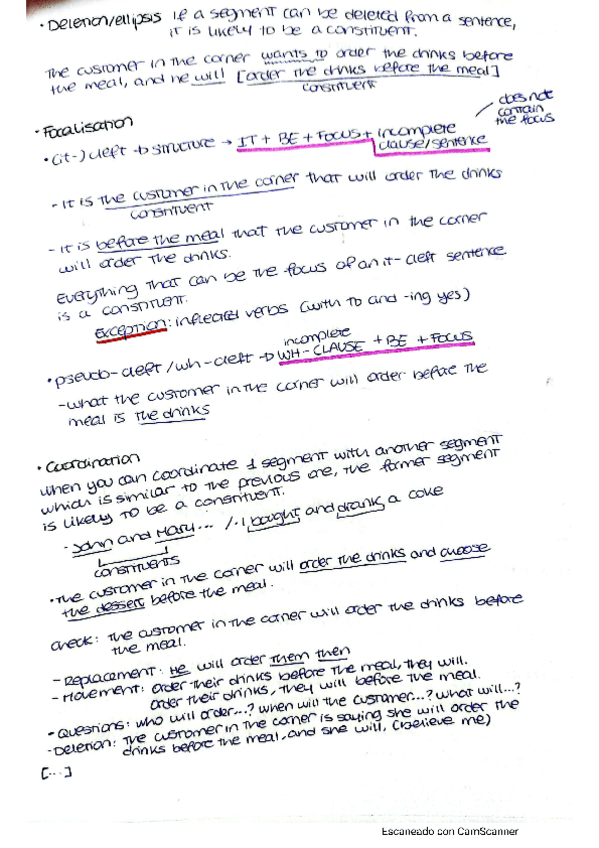 · Deletion/ellipsis If a segment can be deleted from a sentence,
it is likely to be a constituent.
The customer in the corner wants to order the drinks before
the meal, and he will [order the drinks before the meal]
constituent
· Focalisation
does not
contain
the focus
· (it-) cleft → structure → IT + BE + FOCUS + incomplete
clause/sentence
- It is the customer in the corner that will order the drinks
constituent
- It is before the meal that the customer in the corner
will order the drinks.
Everything that can be the focus of an it-cleft sentence
is a constituent.
Exception: inflected verbs (with to and -ing yes)
incomplete
· pseudo-cleft / wh-cleft → WH-CLAUSE + BE + FOCUS
- what the customer in the corner will order before the
meal is the drinks
· Coordination
When you can coordinate 1 segment with another segment
which is similar to the previous one, the former segment
is likely to be a constituent.
- John and Mary... /·I bought and drank a coke
constituents
· The customer in the corner will order the drinks and choose
the dessert before the meal.
Check: The customer in the corner will order the drinks before
the meal.
- Replacement: He will order them then
- Movement: order their drinks before the meal, they will.
order their drinks, they will before the meal.
- Questions: who will order...? when will the customer...? what will...?
- Deletion: The customer in the corner is saying she will order the
drinks before the meal, and she will, (believe me)
[...]
Escaneado con CamScanner